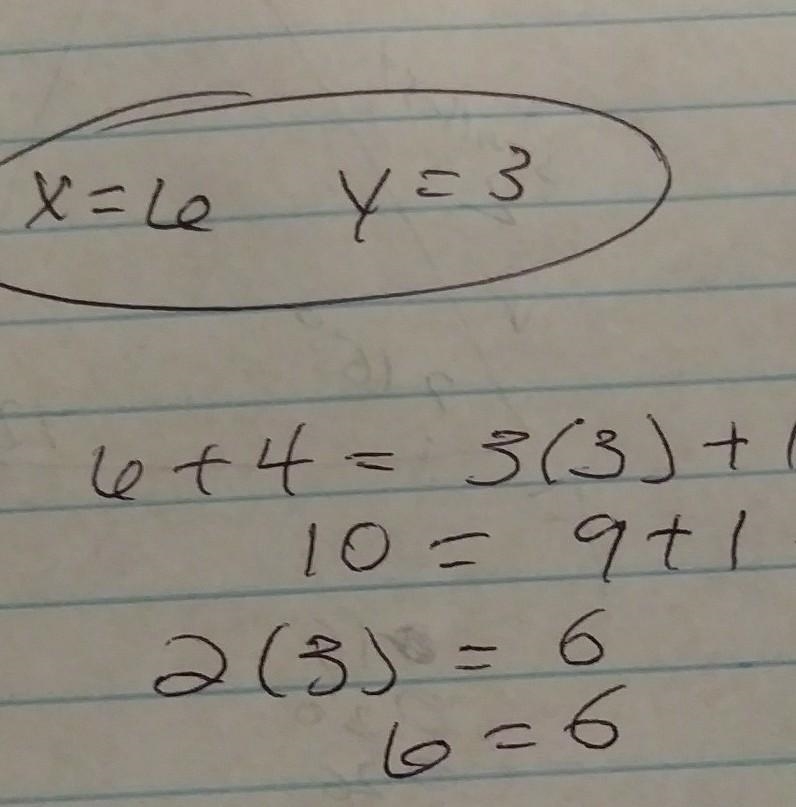 x=6 y=3
6+4= 3(3)+1
10 = 9+1
2(3) = 6
6=6